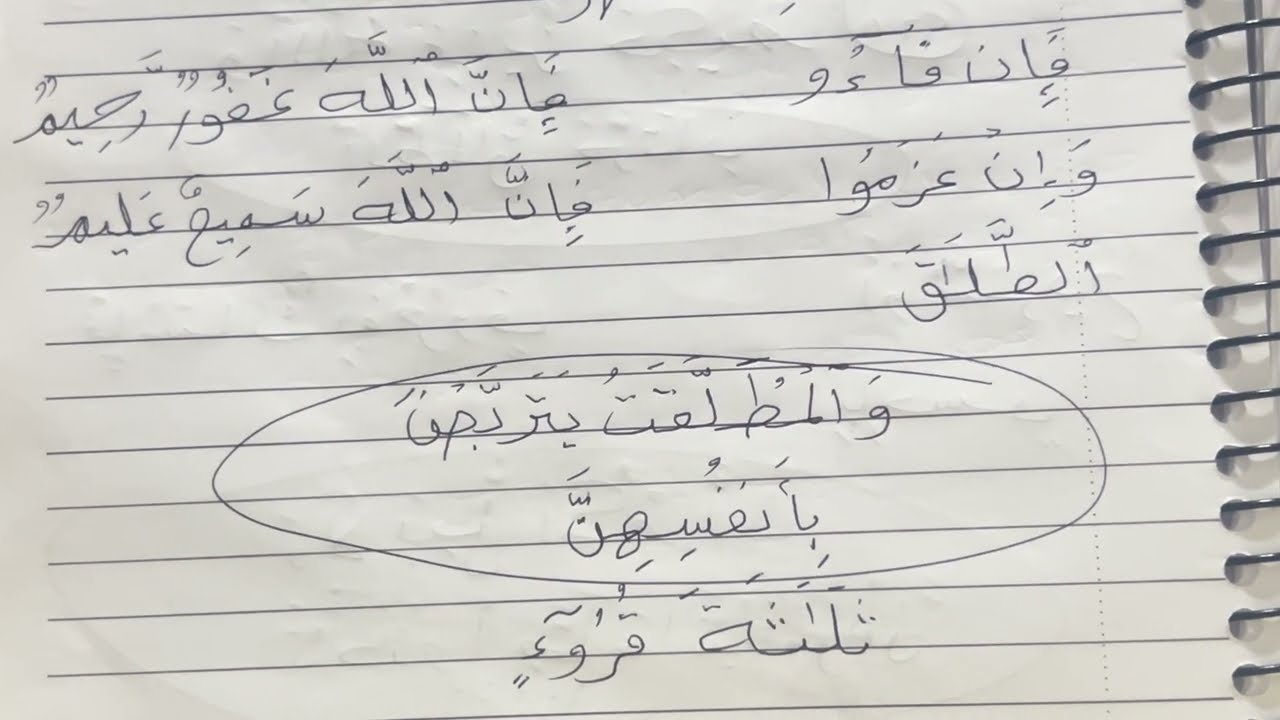 فَإِن فَآءُو فَإِنَّ ٱللَّهَ غَفُورٌ رَّحِيمٌ
وَإِنْ عَزَمُوا فَإِنَّ ٱللَّهَ سَمِيعٌ عَلِيمٌ
ٱلطَّلَـٰقَ
وَالْمُطَلَّقَـٰتُ يَتَرَبَّصْنَ
بِأَنفُسِهِنَّ
ثَلَـٰثَةَ قُرُوٓءٍ